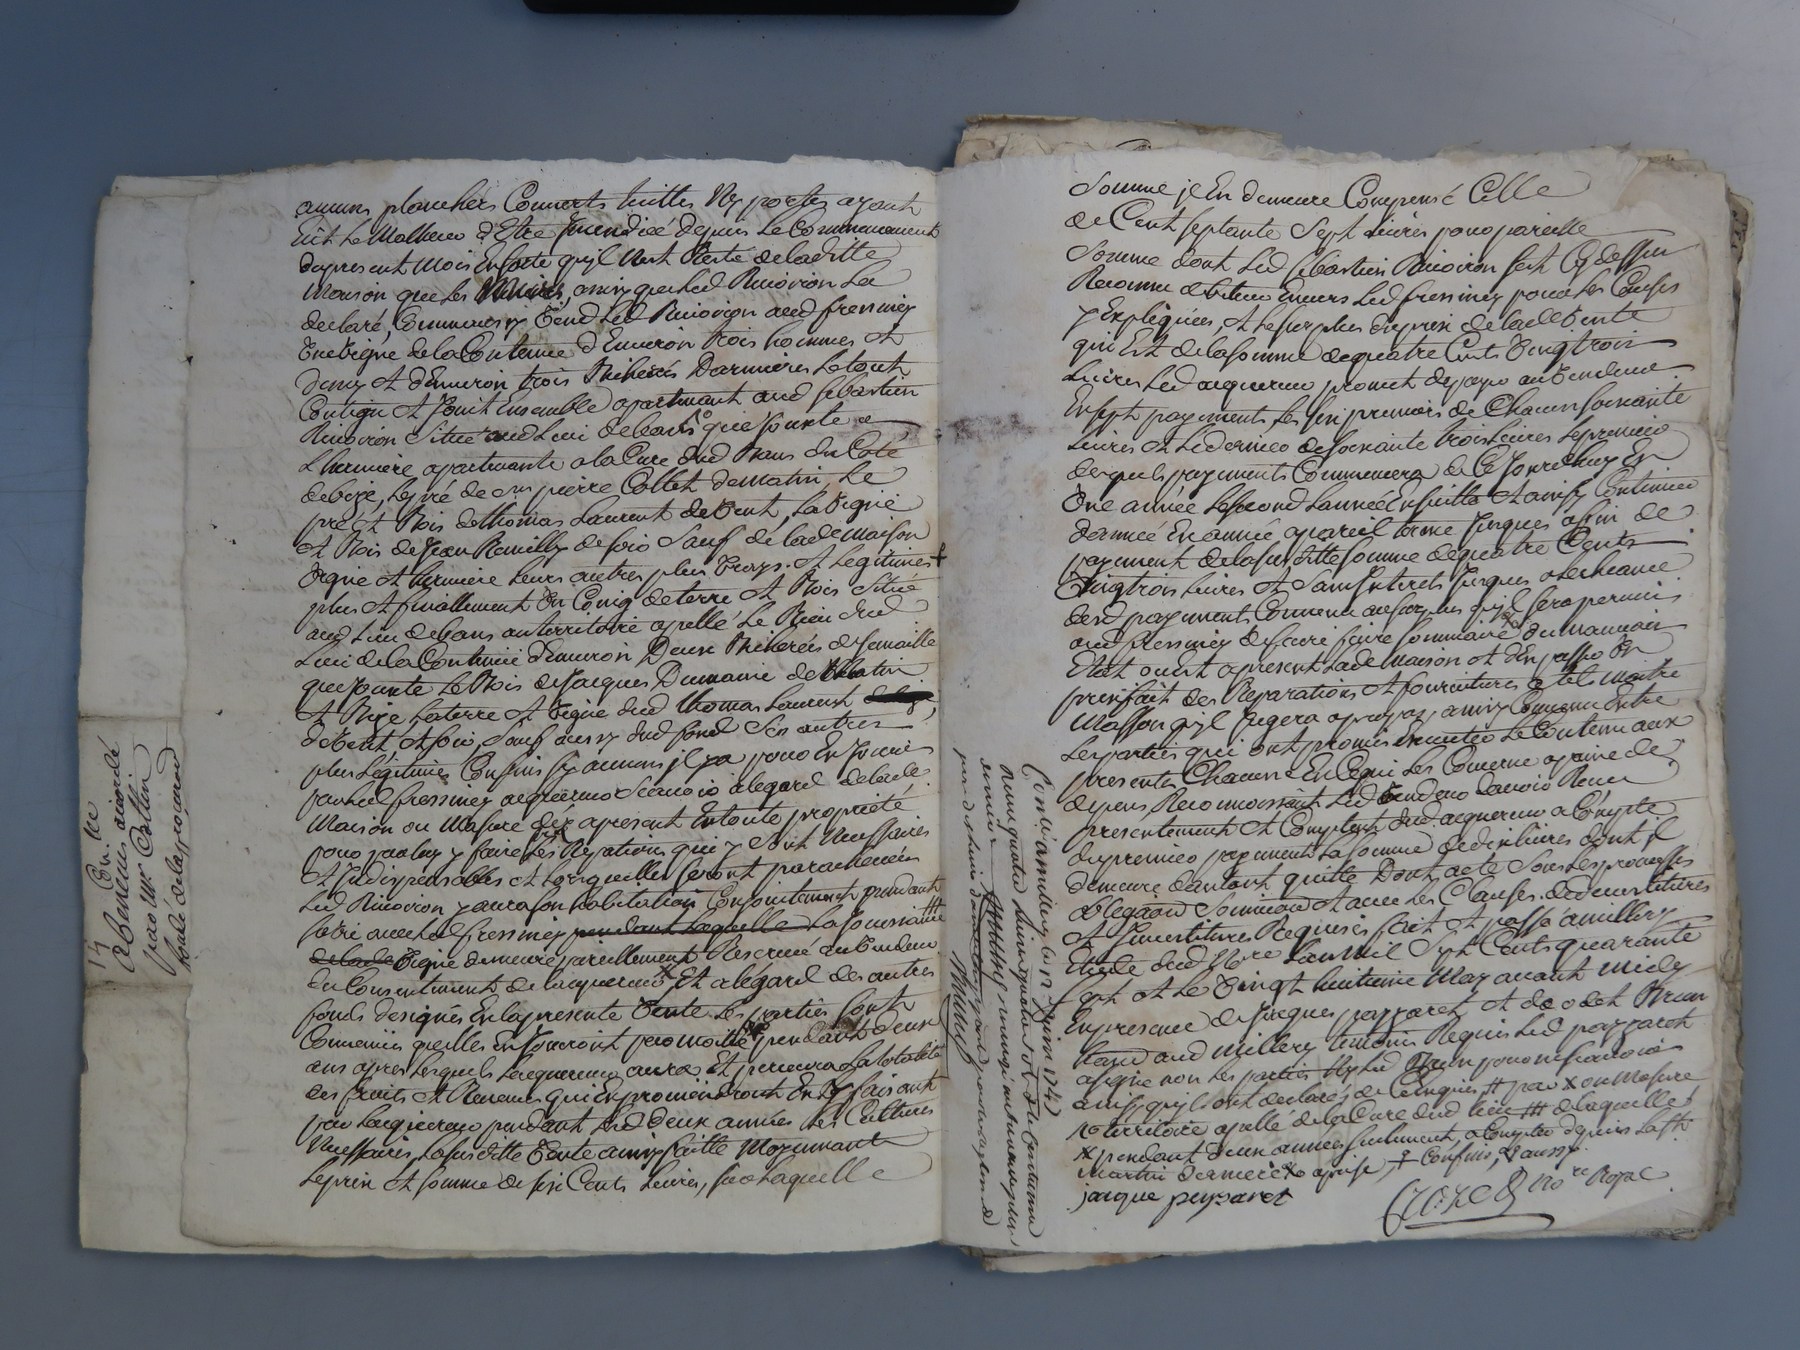 aucuns planchers Couverts tuilles Ny portes ayant
Eut Le Malheur d'Estre Incendiée depuis Le Commancement
du present Mois En sorte qu'jl N'est Resté de laditte
Maison que Les ainsy que Led Rivoiron La
declaré, Comm'aussy Vend Led Rivoiron aud fressiney
Une Vigne de la Contenue d'Environ trois hommes Et
demy Et d'Environ trois Bicherés Le tout
Contigu Et Joint Ensemble apartenant aud sebastien
Rivoiron Situé aud Lieu de bans que Jouxte
L'hermiere apartenante a la Cure dud Bans du Coté
de bize, Le pré de sr pierre Collet de matin, Le
pré Et Bois de thomas Laurent de Vent, La Vigne
Et Bois de Jean Remilly de soir Sauf de lade maison
Vigne Et hermiere Leurs autres plus Vrays Et Legitimes +
plus Et finallement Un Coing de terre Et Bois Situé
aud Lieu de bans au territoire apellé Le Rieu dud
Lieu de la Contenue d'environ Deux Bicherés de semaille
que Jouxte Le Bois de Jacques Dumaine de Matin
Et Bize La terre Et Vigne dud Thomas Laurent
de Vent Et soir, Sauf aussy dud fond Ses autres
plus Légitimes Confins sy aucuns jl y a pour En Jouir
par Led fressiney acquereur Scavoir a legard de lade
Maison ou Masure dez a present En toute propriété
pour par luy y faire Les Reparations qui y Sont Necessaires
Et Indispensables Et Lorsquelles seront parachevées
Led Rivoiron y aura son habitation Conjointement pendant
sa vie avec Led fressiney pendant laquelle La Jouissance
de lade Vigne demeure pareillement Reservée au Vendeur
du Consentement de l'acquereur Et a legard des autres
fonds designés En la presente Vente Les parties sont
Convenues quelles En Jouiront par moitié pendant deux
ans apres Lesquels L'acquereur aura Et percevra La totalité
des fruits Et Revenus qui En proviendront En Y faisant
par Lacquereur pendant Led deux années Les Cultures
Necessaires, Lasusditte Vente ainsy faitte Moyennant
Le prix Et somme de six Cents Livres, sur Laquelle
Somme je En demeure Compensé Celle
de Cent septante Sept Livres pour pareille
Somme dont Led sebastien Rivoiron sest Cy dessus
Reconnu debiteur Envers Led fressiney pour Les Causes
y Expliquées, Et Le surplus du prix de lade Vente
qui Est de la somme de quatre Cents Vingt trois
Livres Led acquereur promet de payer au Vendeur
En sept payements Les six premiers de Chacun soixante
Livres Et Le dernier de soixante trois Livres Le premier
desquels payements Commencera de Ce Jourdhuy En
Une année Le second L'année En suitte Et ainsy Continuer
d'année En année a pareil terme Jusques a fin de
payement de la susditte somme de quatre Cents
Vingt trois Livres Et Sans Interets Jusques a Lecheance
desd payements Convenu au surplus qu'jl sera permis
aud fressiney de faire faire Sommaire du mauvais
Etat ou Est a present Lade Maison Et d'En passer Un
prixfait des Reparations Et fournitures a tel Maitre
Masson qu'jl Jugera a propos, ainsy Convenu Entre
Les parties qui ont promis executer Le Contenu aux
presentes Chacune En Ce qui Les Concerne a peine de
depens Reconnoissant Led Vendeur davoir Receu
presentement Et Comptant dud. acquereur a Compte
du premier payement La somme de dix Livres dont jl
demeure d'autant quitte Dont acte Sous Les promesses
obligaon Soumison Et avec Les Clauses de devestitures
Et Investitures Requises fait Et passé a millery
Etude dud Nore L'an Mil Sept Cents quarante
sept Et Le Vingt huitieme May avant Midy
En presence de Jacques payzaret Et de odet Brun
aud Millery temoins Requis Led payzaret
a signé non Les parties Ny Led Brun pour ne scavoir
ainsy qu'jls ont declaré de Ce Enquis # par X ou Masure
10 territoire apellé de la Cure dud lieu ### de laquelle
X pendant deux années seulement, a Compter depuis La St
Martin derniere X
+ Confins, aussy
jaque peysaret
Nore Royal
Conllé a millery le 12 Juin 1747
14
Con. Ue
par mr Collin